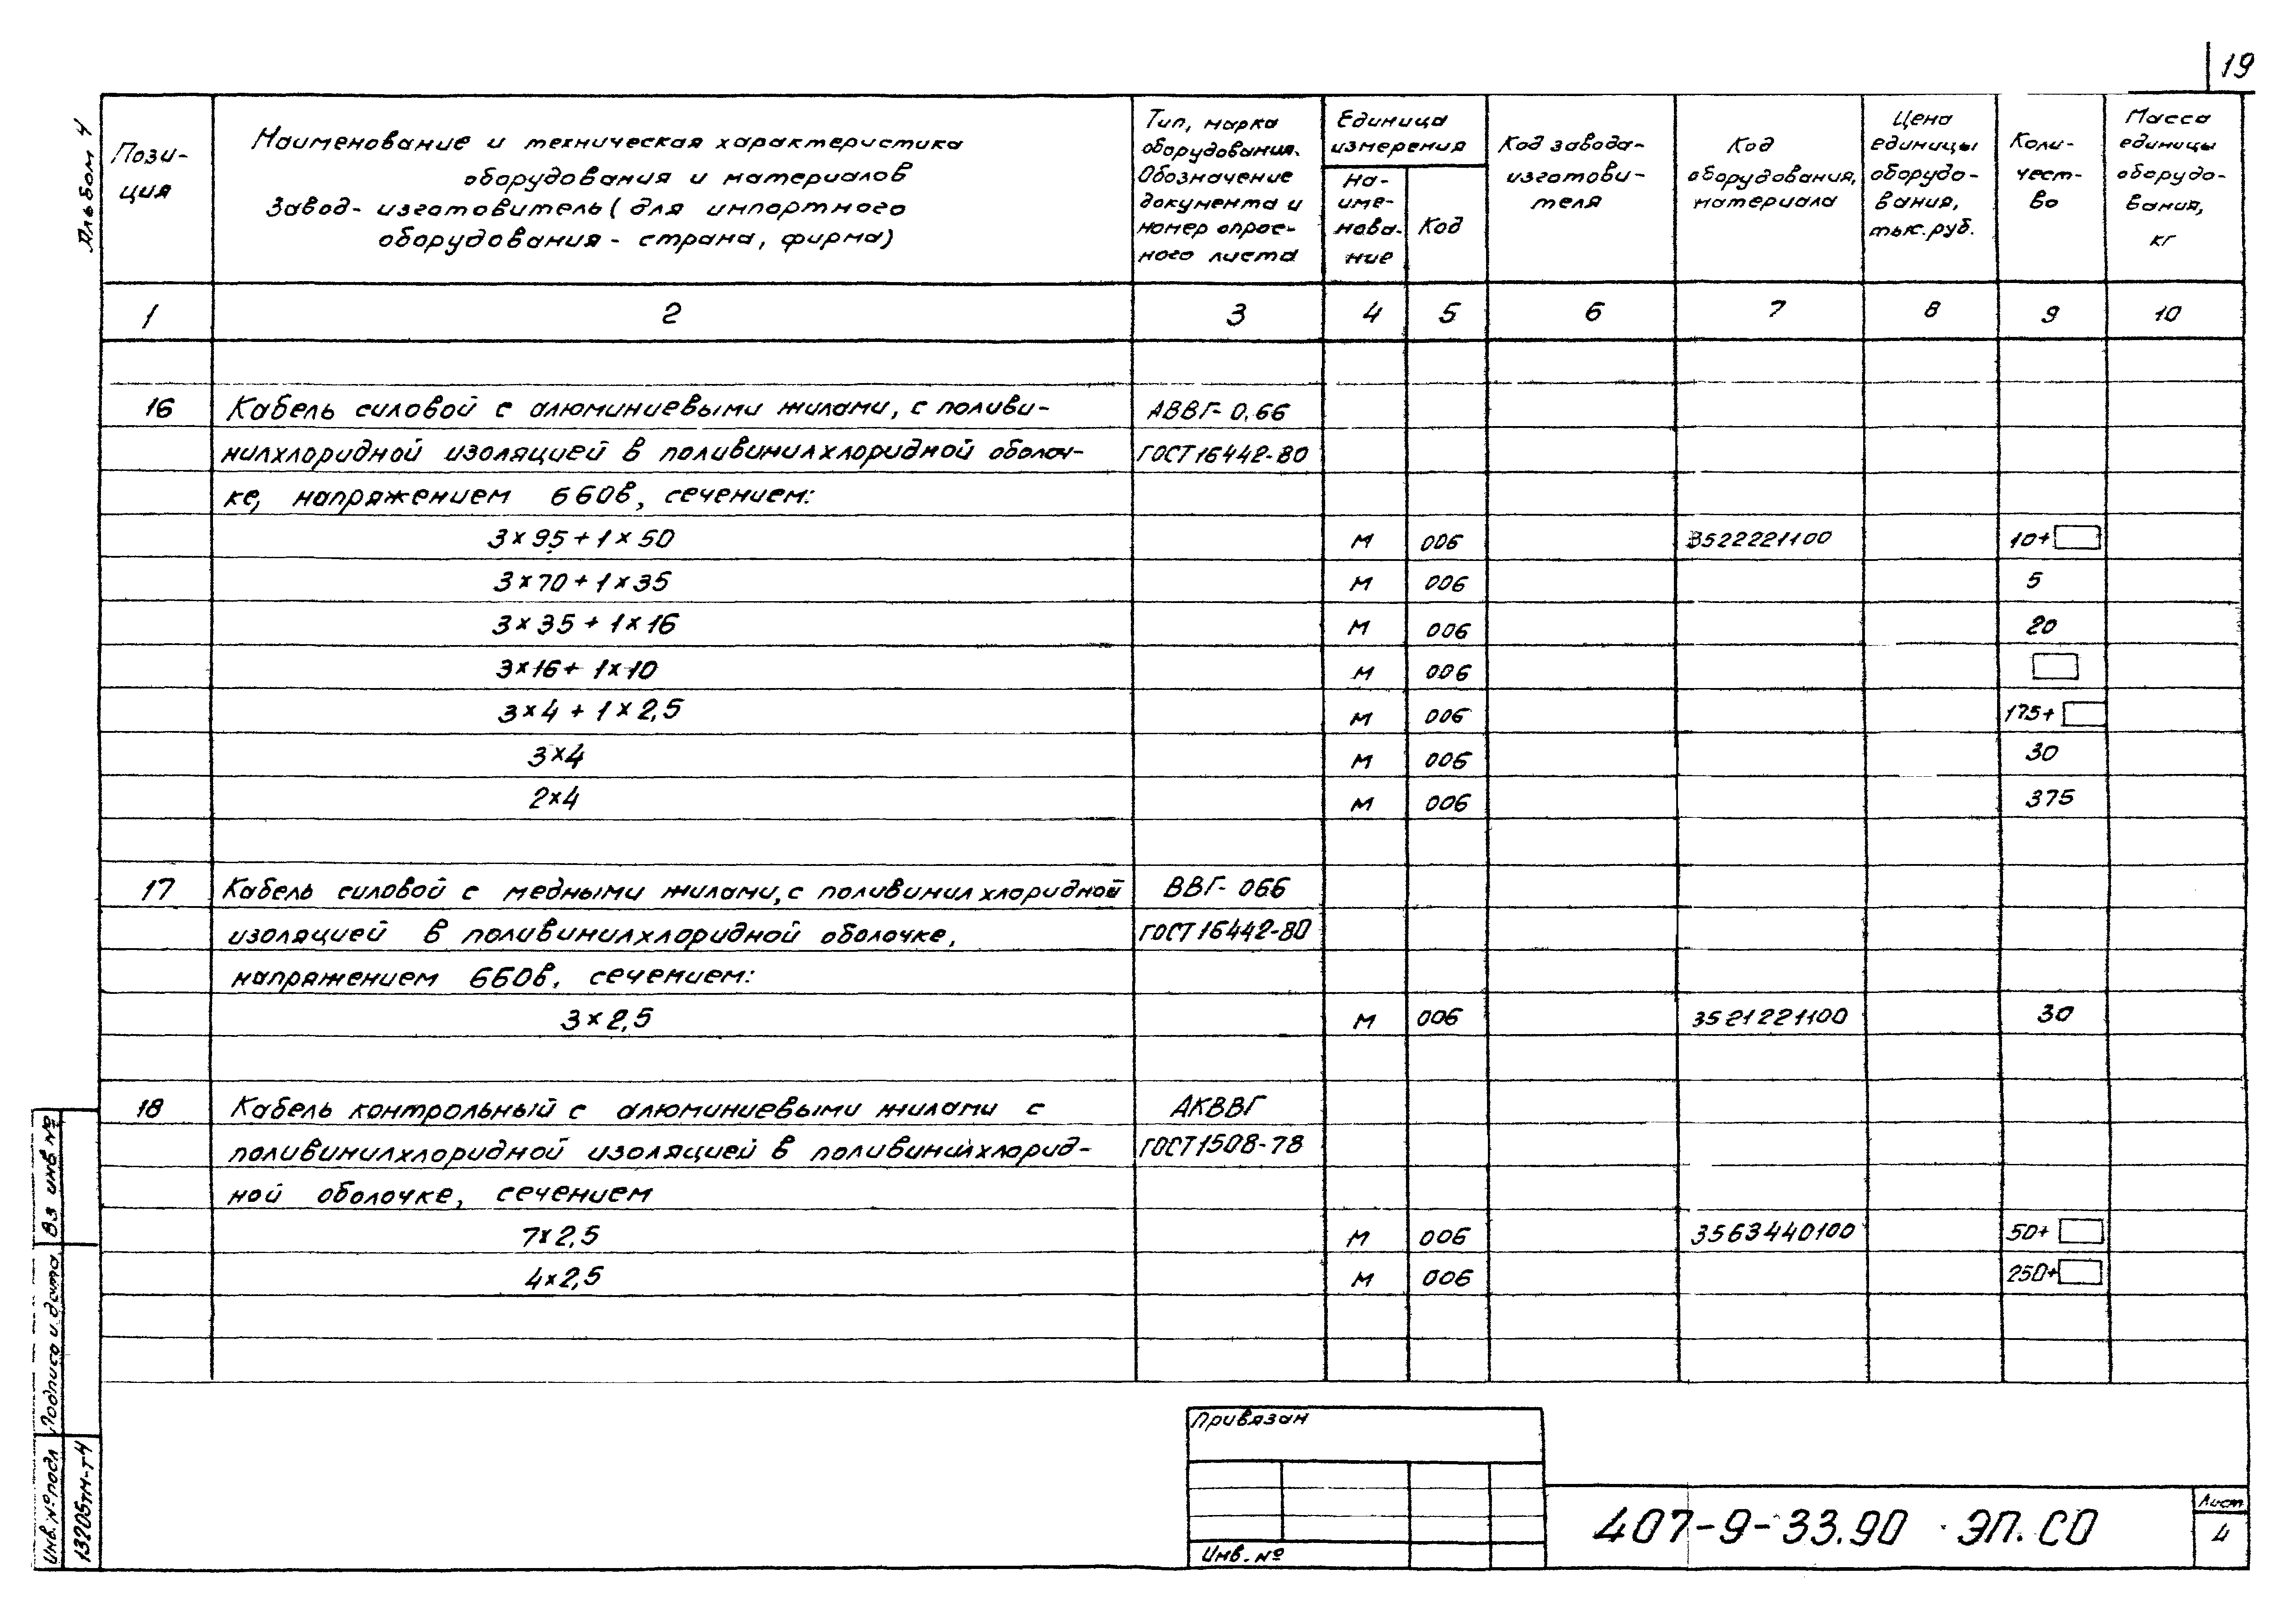 19
Альбом 4
Пози-
ция
Наименование и техническая характеристика
оборудования и материалов
Завод-изготовитель (для импортного
оборудования - страна, фирма)
Тип, марка
оборудования.
Обозначение
документа и
номер опрос-
ного листа
Единица
измерения
На-
име-
нова-
ние
Код
Код завода-
изготови-
теля
Код
оборудования,
материала
Цена
единицы
оборудо-
вания,
тыс. руб.
Коли-
чест-
во
Масса
единицы
оборудо-
вания,
кг
1 2 3 4 5 6 7 8 9 10
16 Кабель силовой с алюминиевыми жилами, с поливи- АВВГ-0,66
нилхлоридной изоляцией в поливинилхлоридной оболоч- ГОСТ 16442-80
ке, напряжением 660в, сечением:
3×95+1×50 м 006 3522221100 10+
3×70+1×35 м 006 5
3×35+1×16 м 006 20
3×16+1×10 м 006
3×4+1×2,5 м 006 175+
3×4 м 006 30
2×4 м 006 375
17 Кабель силовой с медными жилами, с поливинилхлоридной ВВГ-066
изоляцией в поливинилхлоридной оболочке, ГОСТ 16442-80
напряжением 660в, сечением:
3×2,5 м 006 3521221100 30
18 Кабель контрольный с алюминиевыми жилами с АКВВГ
поливинилхлоридной изоляцией в поливинилхлорид- ГОСТ 1508-78
ной оболочке, сечением
7×2,5 м 006 3563440100 50+
4×2,5 м 006 250+
Привязан
Инв. №
407-9-33.90 ЭП.СО
Лист
4
Вз инв №
Подпись и дата
Инв. № подл
13205тм-т4